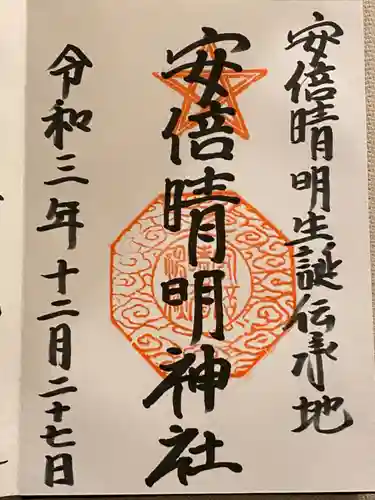 安倍晴明生誕伝承地
安倍晴明神社
令和三年十二月二十七日